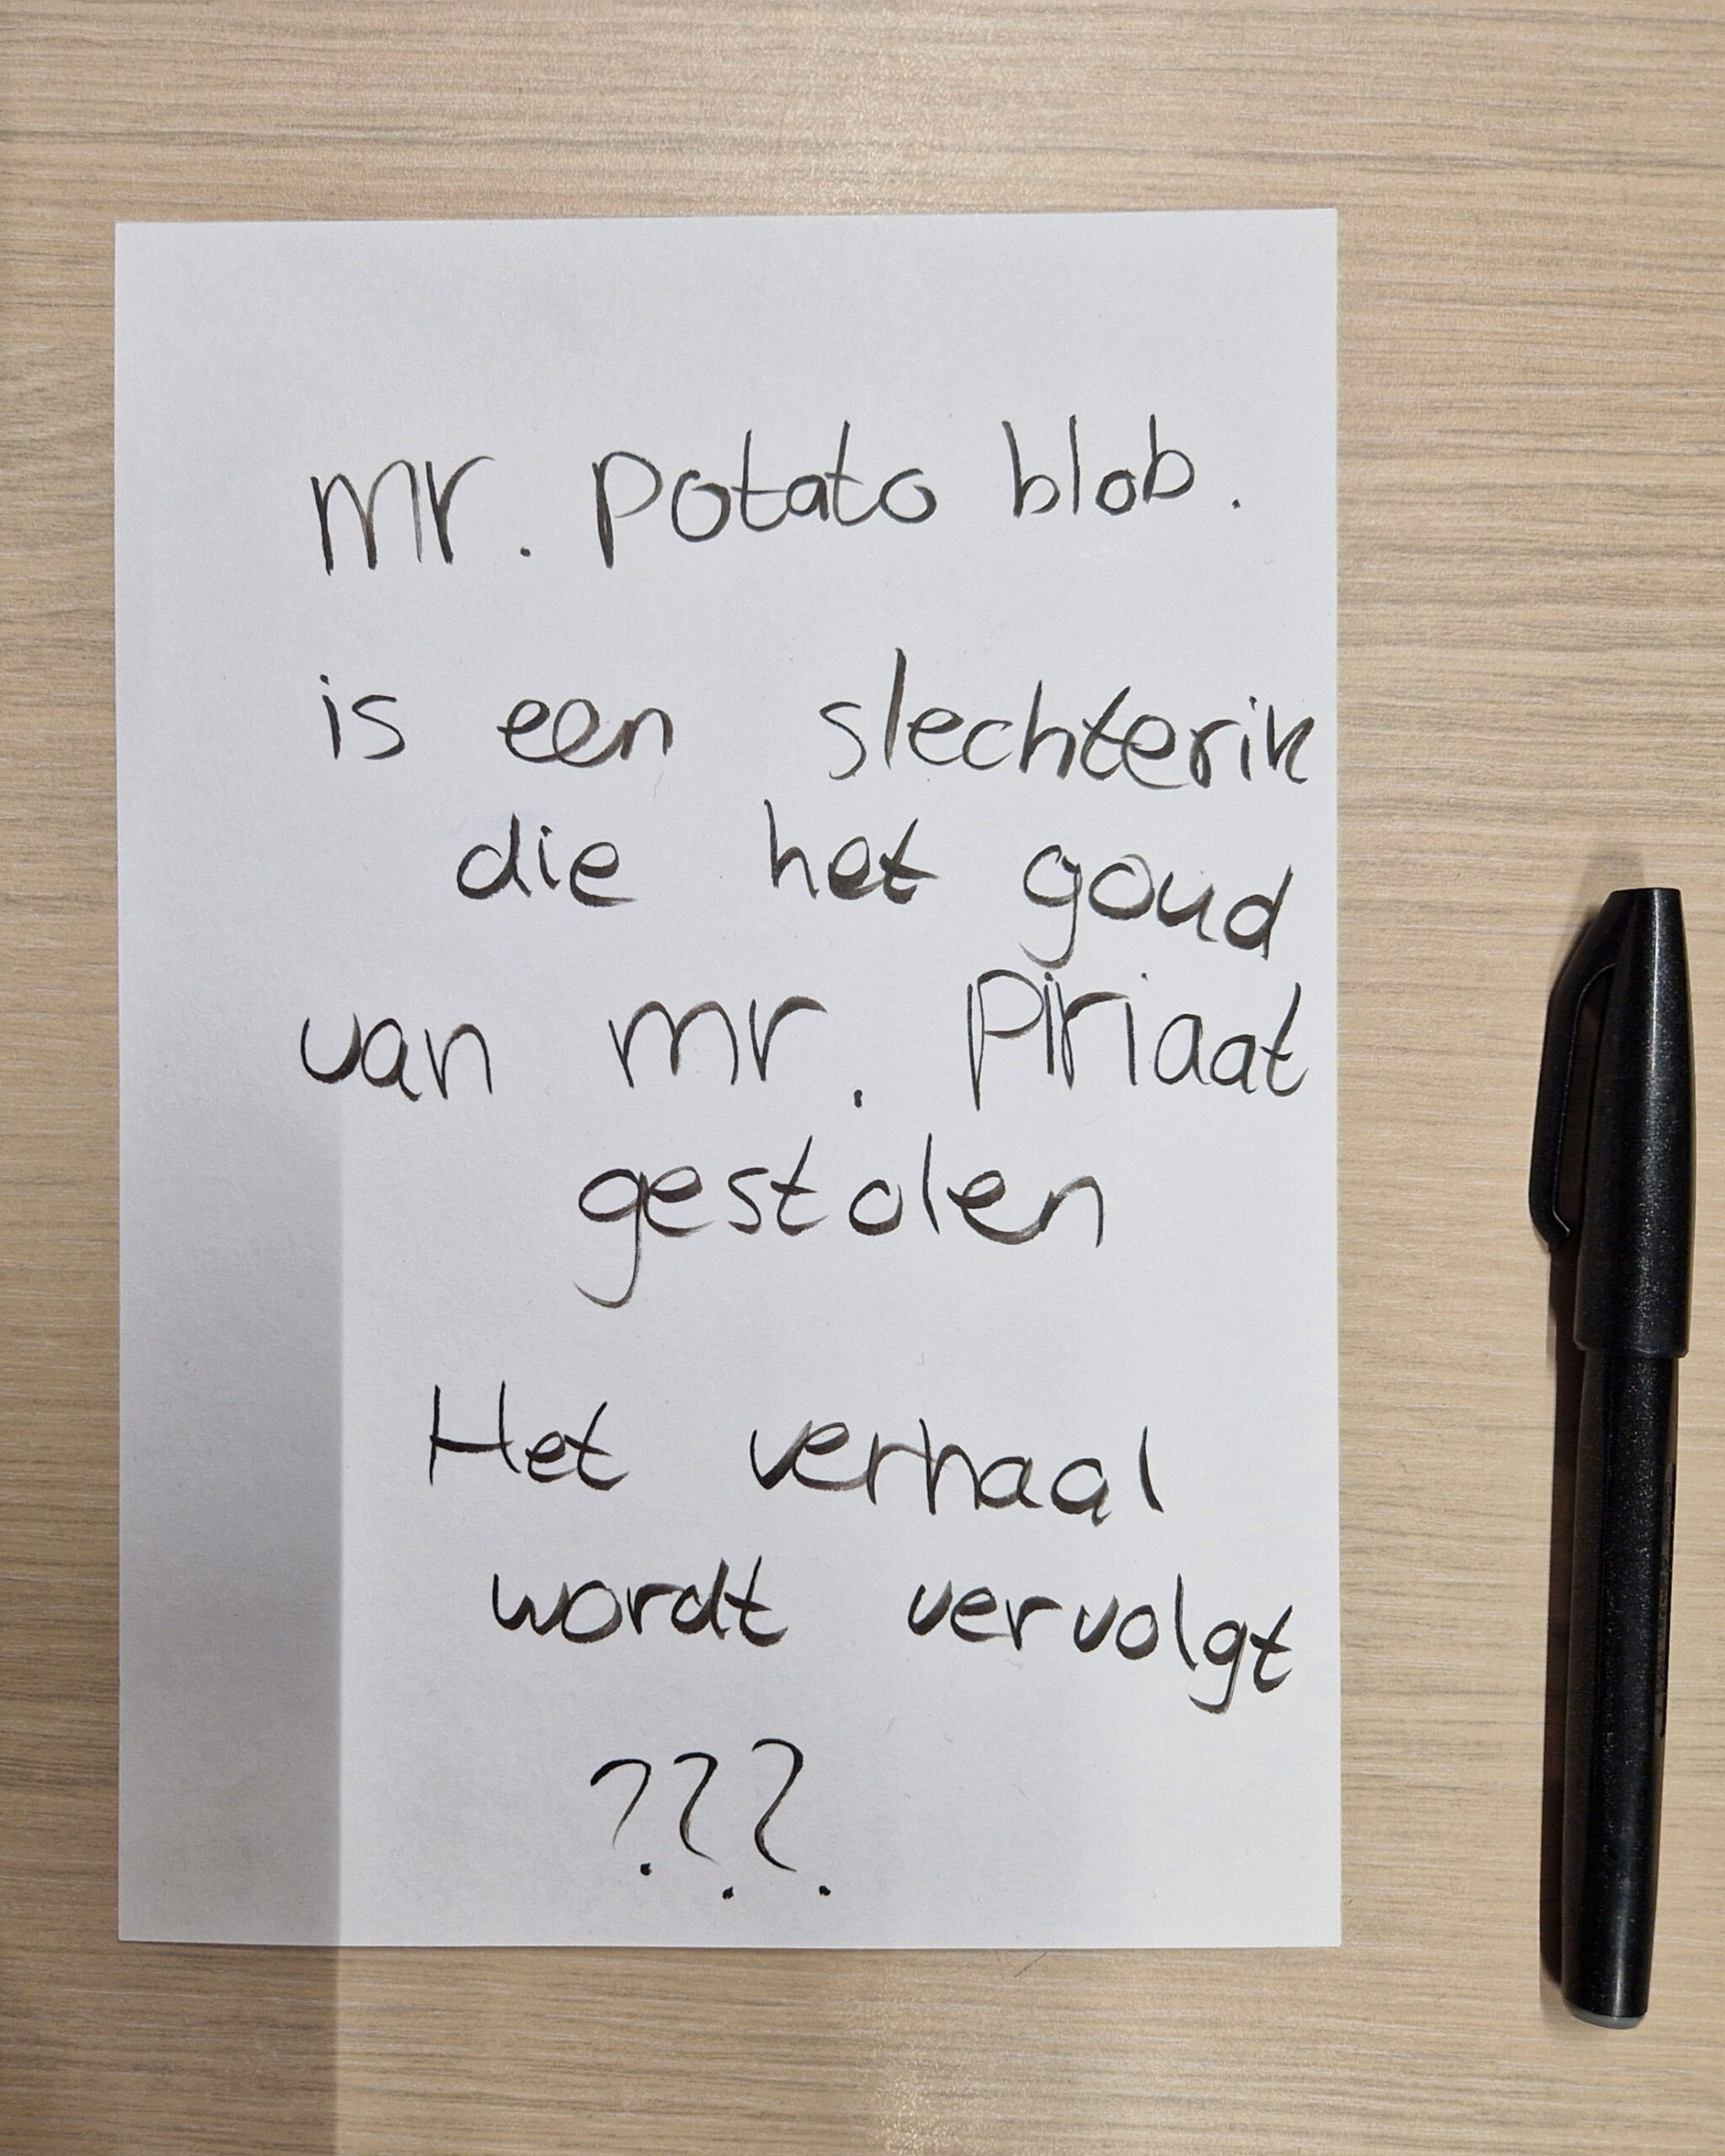 mr. potato blob.
is een slechterik
die het goud
van mr. Piriaat
gestolen
Het verhaal
wordt vervolgt
???